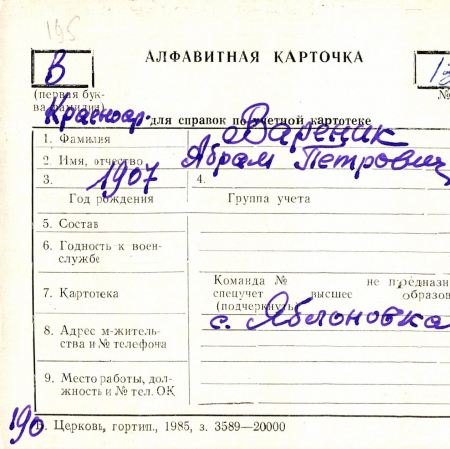 195
АЛФАВИТНАЯ КАРТОЧКА
В
13
(первая бук-
ва фамилии)
№
Красноар.
для справок по учетной картотеке
1. Фамилия Вареник
2. Имя, отчество Абрам Петрович
3. 1907 4.
Год рождения Группа учета
5. Состав
6. Годность к воен-
службе
Команда № не предназн
7. Картотека спецучет высшее образов
(подчеркнуть)
с. Яблоновка
8. Адрес м-жительст-
ва и № телефона
9. Место работы, дол-
жность и № тел. ОК
190
Б. Церковь, гортип., 1985, з. 3589—20000